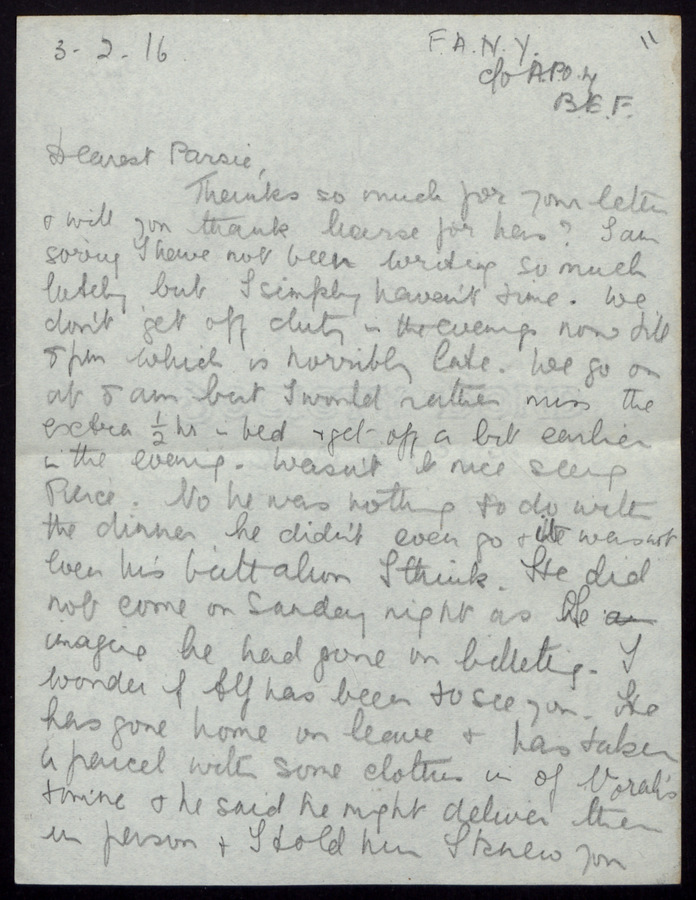 3-2-16
F.A.N.Y.
c/o A.P.O. 4
B.E.F.
11
Dearest Parsie,
Thanks so much for your letter
& will you thank for hers? I am
sorry I have not been writing so much
lately but I simply haven't time. We
don't get off duty in the evenings now till
8 pm which is horribly late. We go on
at 8 am but I would rather miss the
extra ½ hr in bed & get off a bit earlier
in the evening. Wasn't it nice seeing
Pierce. No he was nothing to do with
the dinner he didn't even go & it was not
even his battalion I think. He did
not come on Sunday night as he
imagine he had gone on billeting. I
wonder if Alf has been to see you. He
has gone home on leave & has taken
a parcel with some clothes in of Norah's
& mine & he said he might deliver them
in person & I told him I knew you